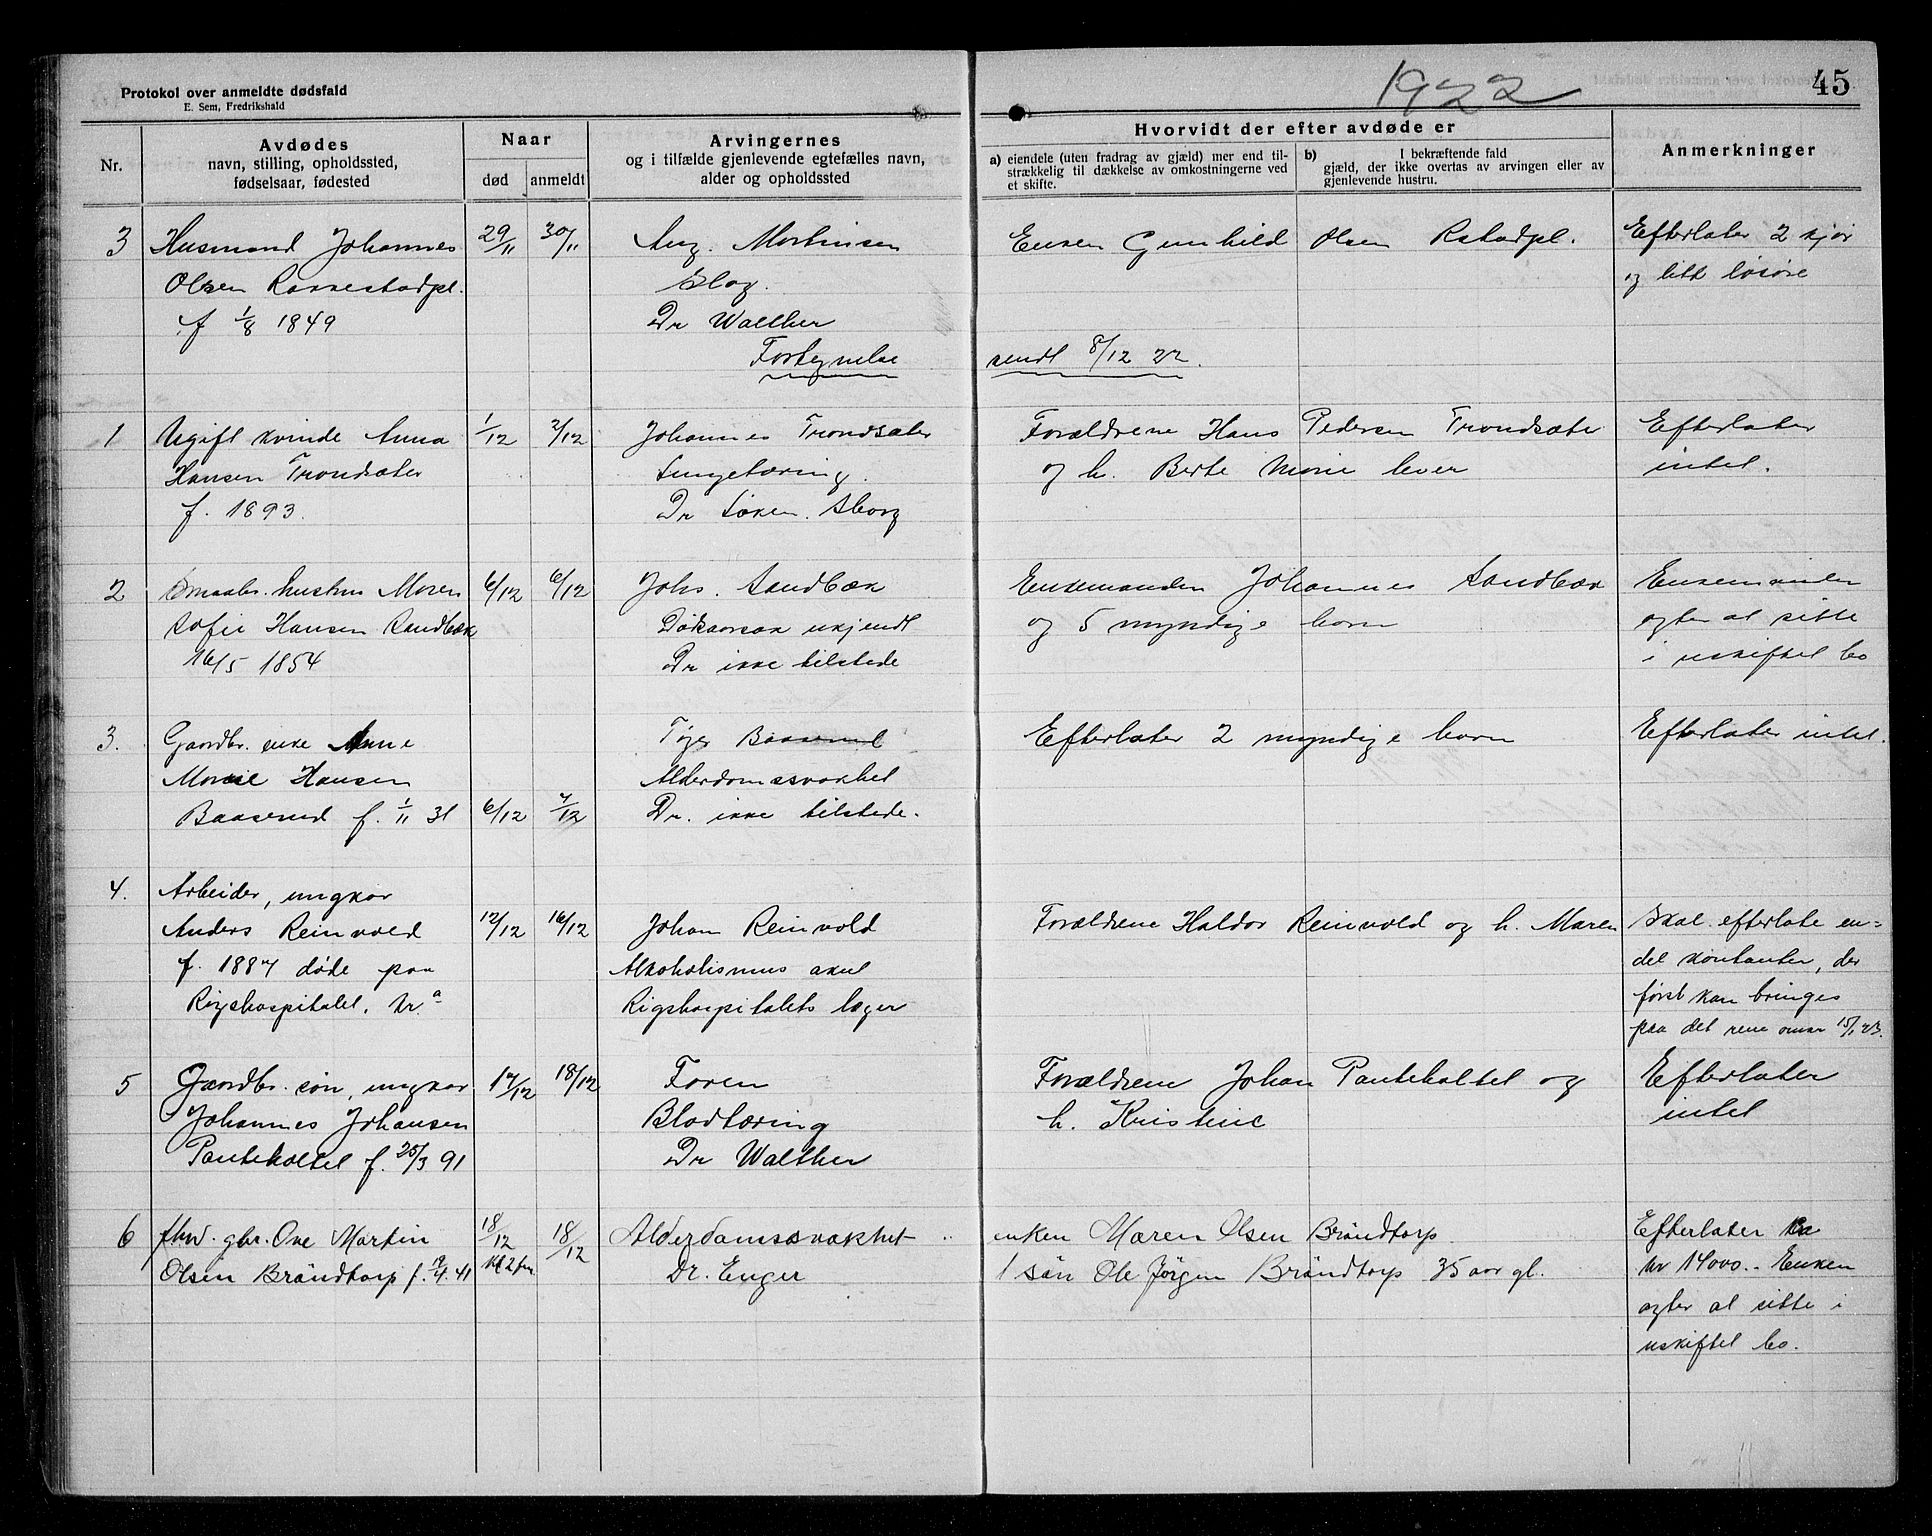 1922
45
Protokol over anmeldte dødsfald
E. Sem, Fredrikshald
Nr.
Avdødes
navn, stilling, opholdssted,
fødselsaar, fødested
Naar
død
anmeldt
Arvingernes
og i tilfælde gjenlevende egtefælles navn,
alder og opholdssted
Hvorvidt der efter avdøde er
a) eiendele (uten fradrag av gjæld) mer end til-
strækkelig til dækkelse av omkostningerne ved
et skifte.
b) I bekræftende fald
gjæld, der ikke overtas av arvingen eller av
gjenlevende hustru.
Anmerkninger
3
Husmand Johannes
Olsen Rakkestadpl.
f 1/8 1849
29/11
30/11
Aug. Mortinsen
Slag.
Dr Walther
Fortegnelse
Enken Gunhild Olsen Rstadpl.
sendt 8/12 22.
Efterlater 2 kjør
og litt løsøre
1
Ugift kvinde Anna
Hansen Trondsæter
f. 1893.
1/12
2/12
Johannes Trondsæter
Lungetæring.
Dr Aborg
Forældrene Hans Pedersen Trondsæte
og h. Berte Marie lever
Efterlater
intet.
2
Smaabr. hustru Maren
Sofie Hansen Sandbæk
16/5 1854
6/12
6/12
Johs. Sandbæk
Dødsaarsak ukjendt
Dr ikke tilstede
Enkemanden Johannes Sandbæk
og 5 myndige barn
Enkemanden
agter at sitte
i uskiftet bo
3.
Gaardbr. enke Anne
Marie Hansen
Baaserud f. 1/11 31
6/12
7/12
Baaserud
Alderdomssvakhet
Dr. ikke tilstede.
Efterlater 2 myndige barn
Efterlater intet.
4.
Arbeider, ungkar
Anders Reinvold
f. 1887 døde paa
Rigshospitalet. Kr.a
12/12
16/12
Johan Reinvold
Alkoholismus akut
Rigshospitalets læger
Forældrene Haldor Reinvold og h. Maren
Skal efterlate en-
del kontanter, der
først kan bringes
paa det rene omkr 15/1 23.
5
Gaardbr. søn, ungkar
Johannes Johansen
Panteholtet f. 25/3 91
17/12
18/12
Faren
Blodtæring
Dr Walther
Forældrene Johan Panteholtet og
h. Kristine
Efterlater
intet
6
fhv. gbr. Ove Martin
Olsen Brändtorp f. 41
18/12
Kl 2 fm.
18/12
Alderdomssvakhet
Dr. Enger
enken Maren Olsen Brändtorp.
1 sön Ole Jørgen Brändtorp 35 aar gl.
Efterlater ca
kr 14000.- Enken
agter at sitte i
uskiftet bo.